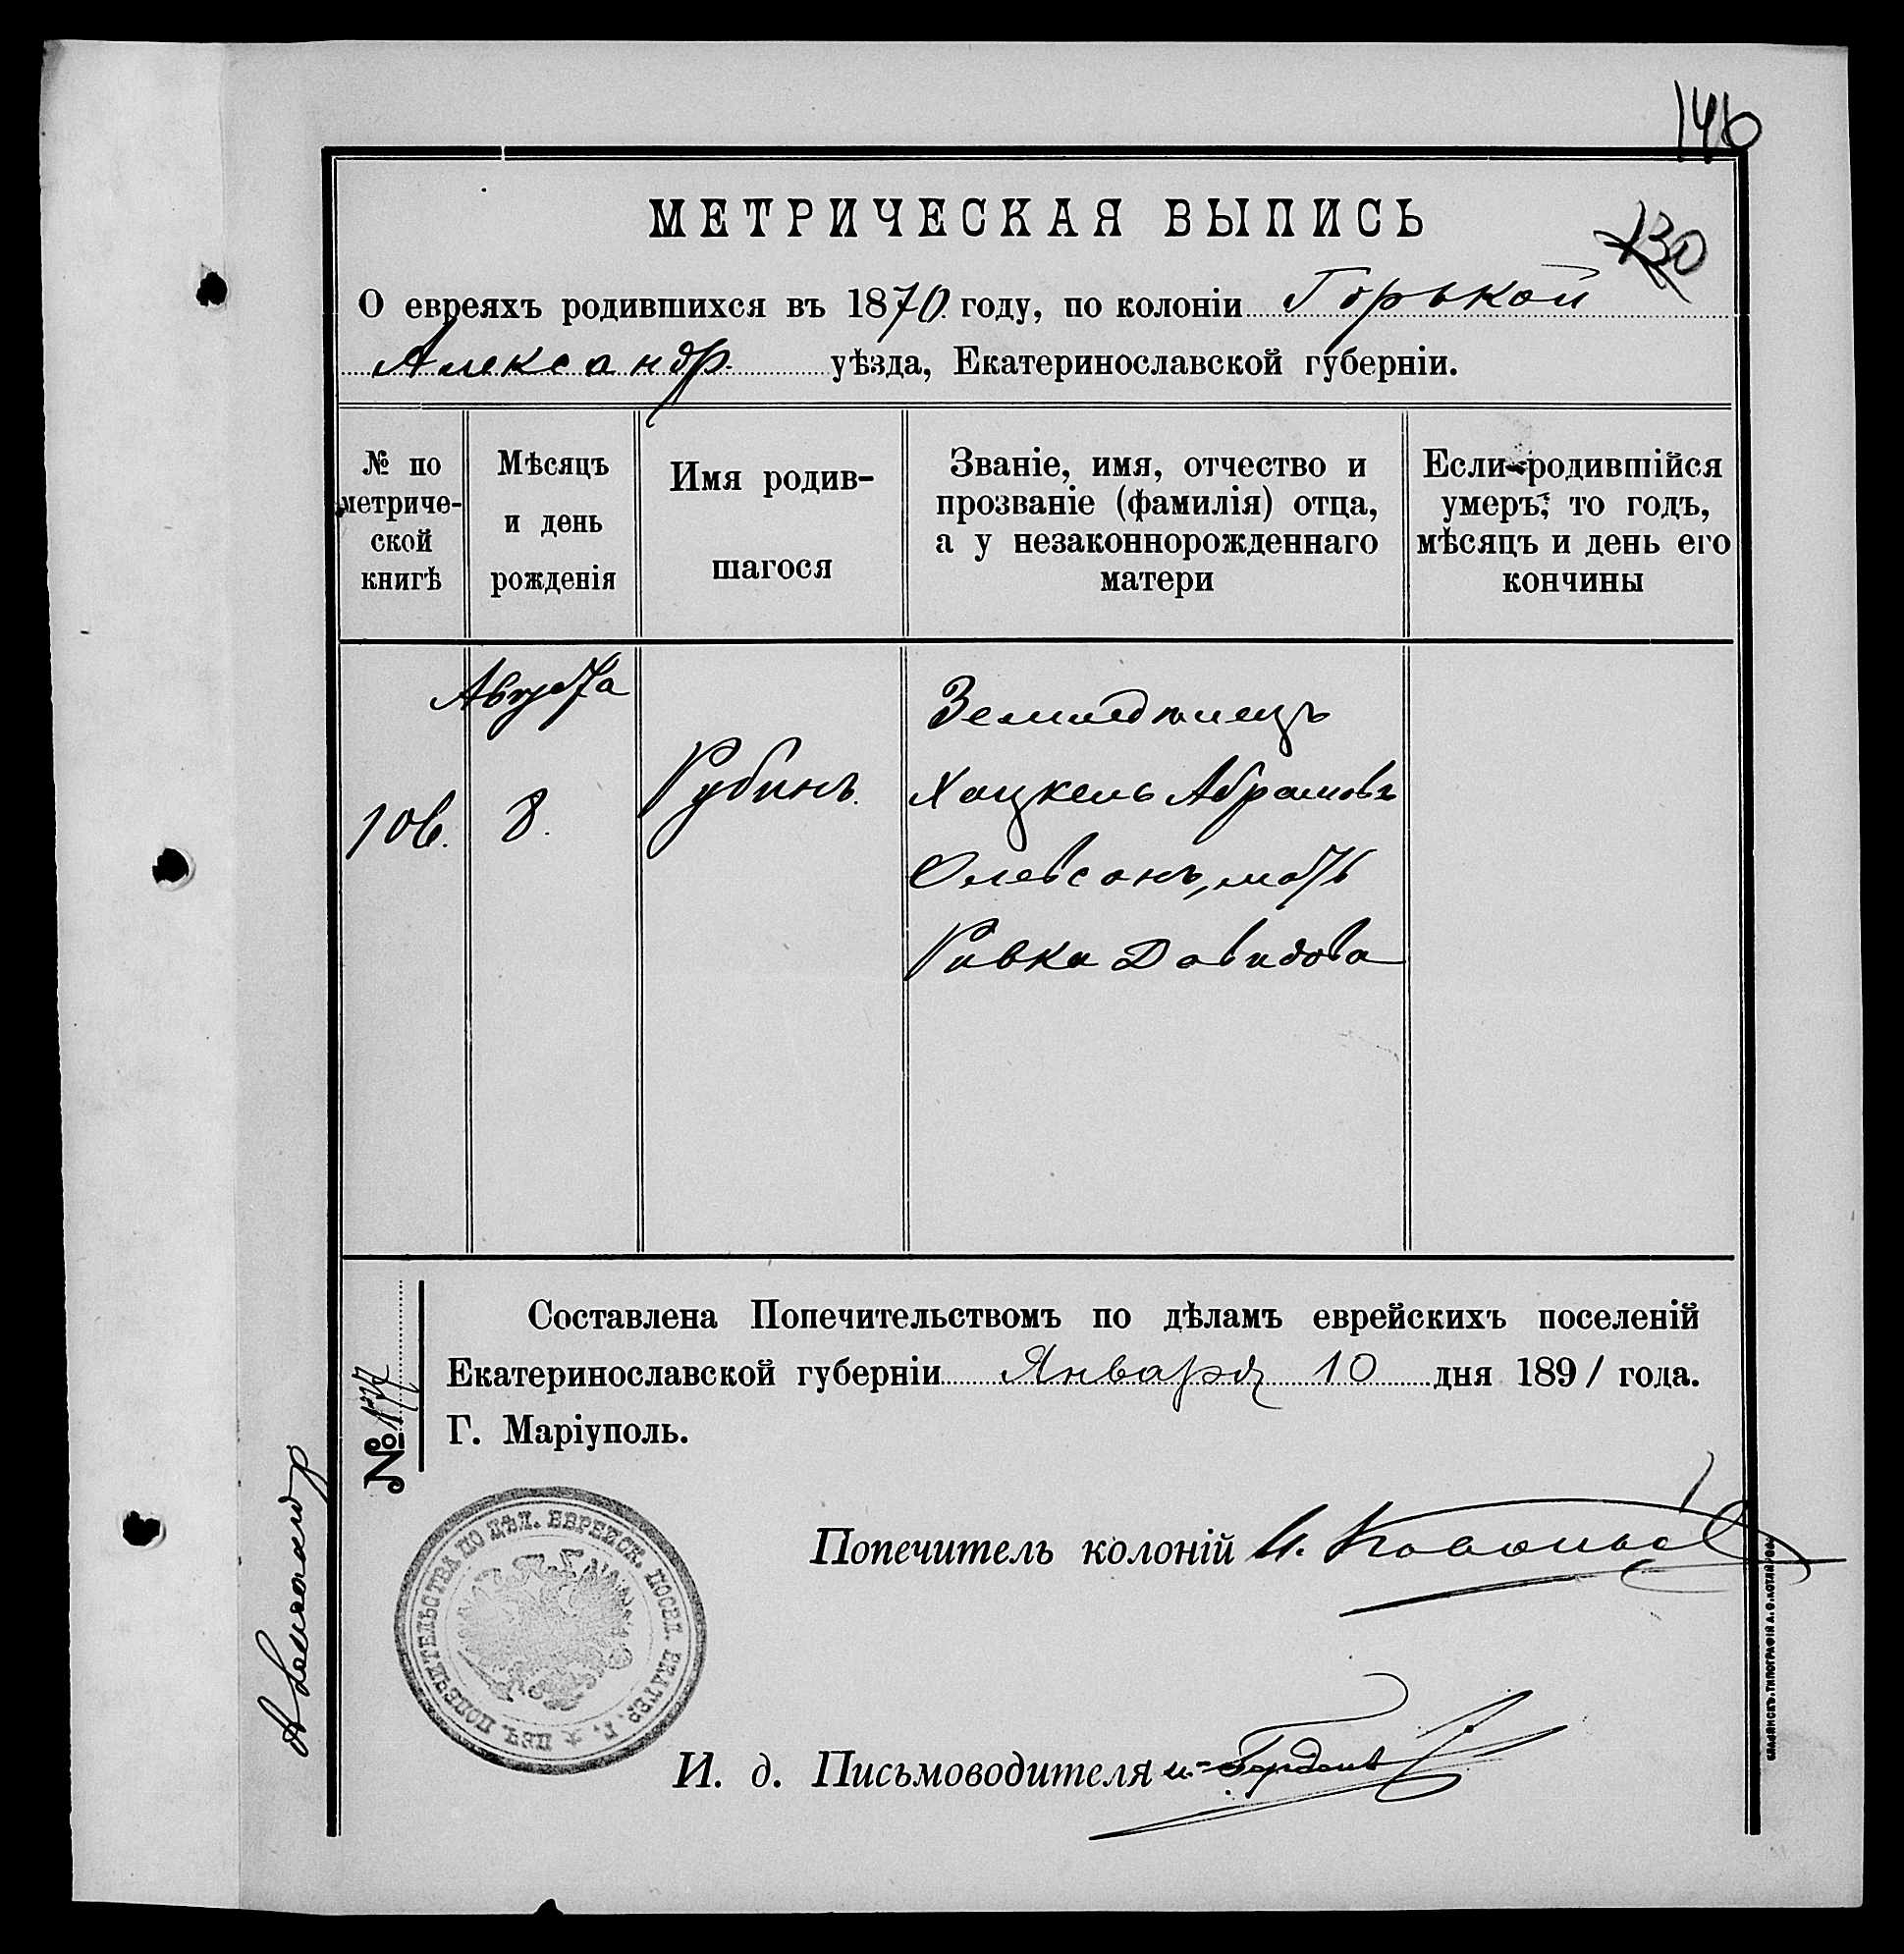 146
МЕТРИЧЕСКАЯ ВЫПИСЬ
130
О евреяхъ родившихся въ 1870. году, по колоніи Горькой
Александр. уѣзда, Екатеринославской губерніи.
№ по метриче-ской книгѣ
Мѣсяцъ и день рожденія
Имя родив-шагося
Званіе, имя, отчество и прозваніе (фамилія) отца, а у незаконнорожденнаго матери
Если родившійся умеръ, то годъ, мѣсяцъ и день его кончины
Августа
106. 8.
Рубинъ.
Земледѣлецъ
Хацкель Абрамовъ
Олевсонъ, мать
Ривка Давидова
Составлена Попечительствомъ по дѣламъ еврейскихъ поселеній
Екатеринославской губерніи Января 10 дня 1891 года.
Г. Маріуполь.
№ 177
ПЕЧ. ПОПЕЧИТЕЛЬСТВА ПО ДѢЛ. ЕВРЕЙСК. ПОСЕЛ. ЕКАТЕР. Г.
Попечитель колоній И.
И. д. Письмоводителя И. Гордонъ